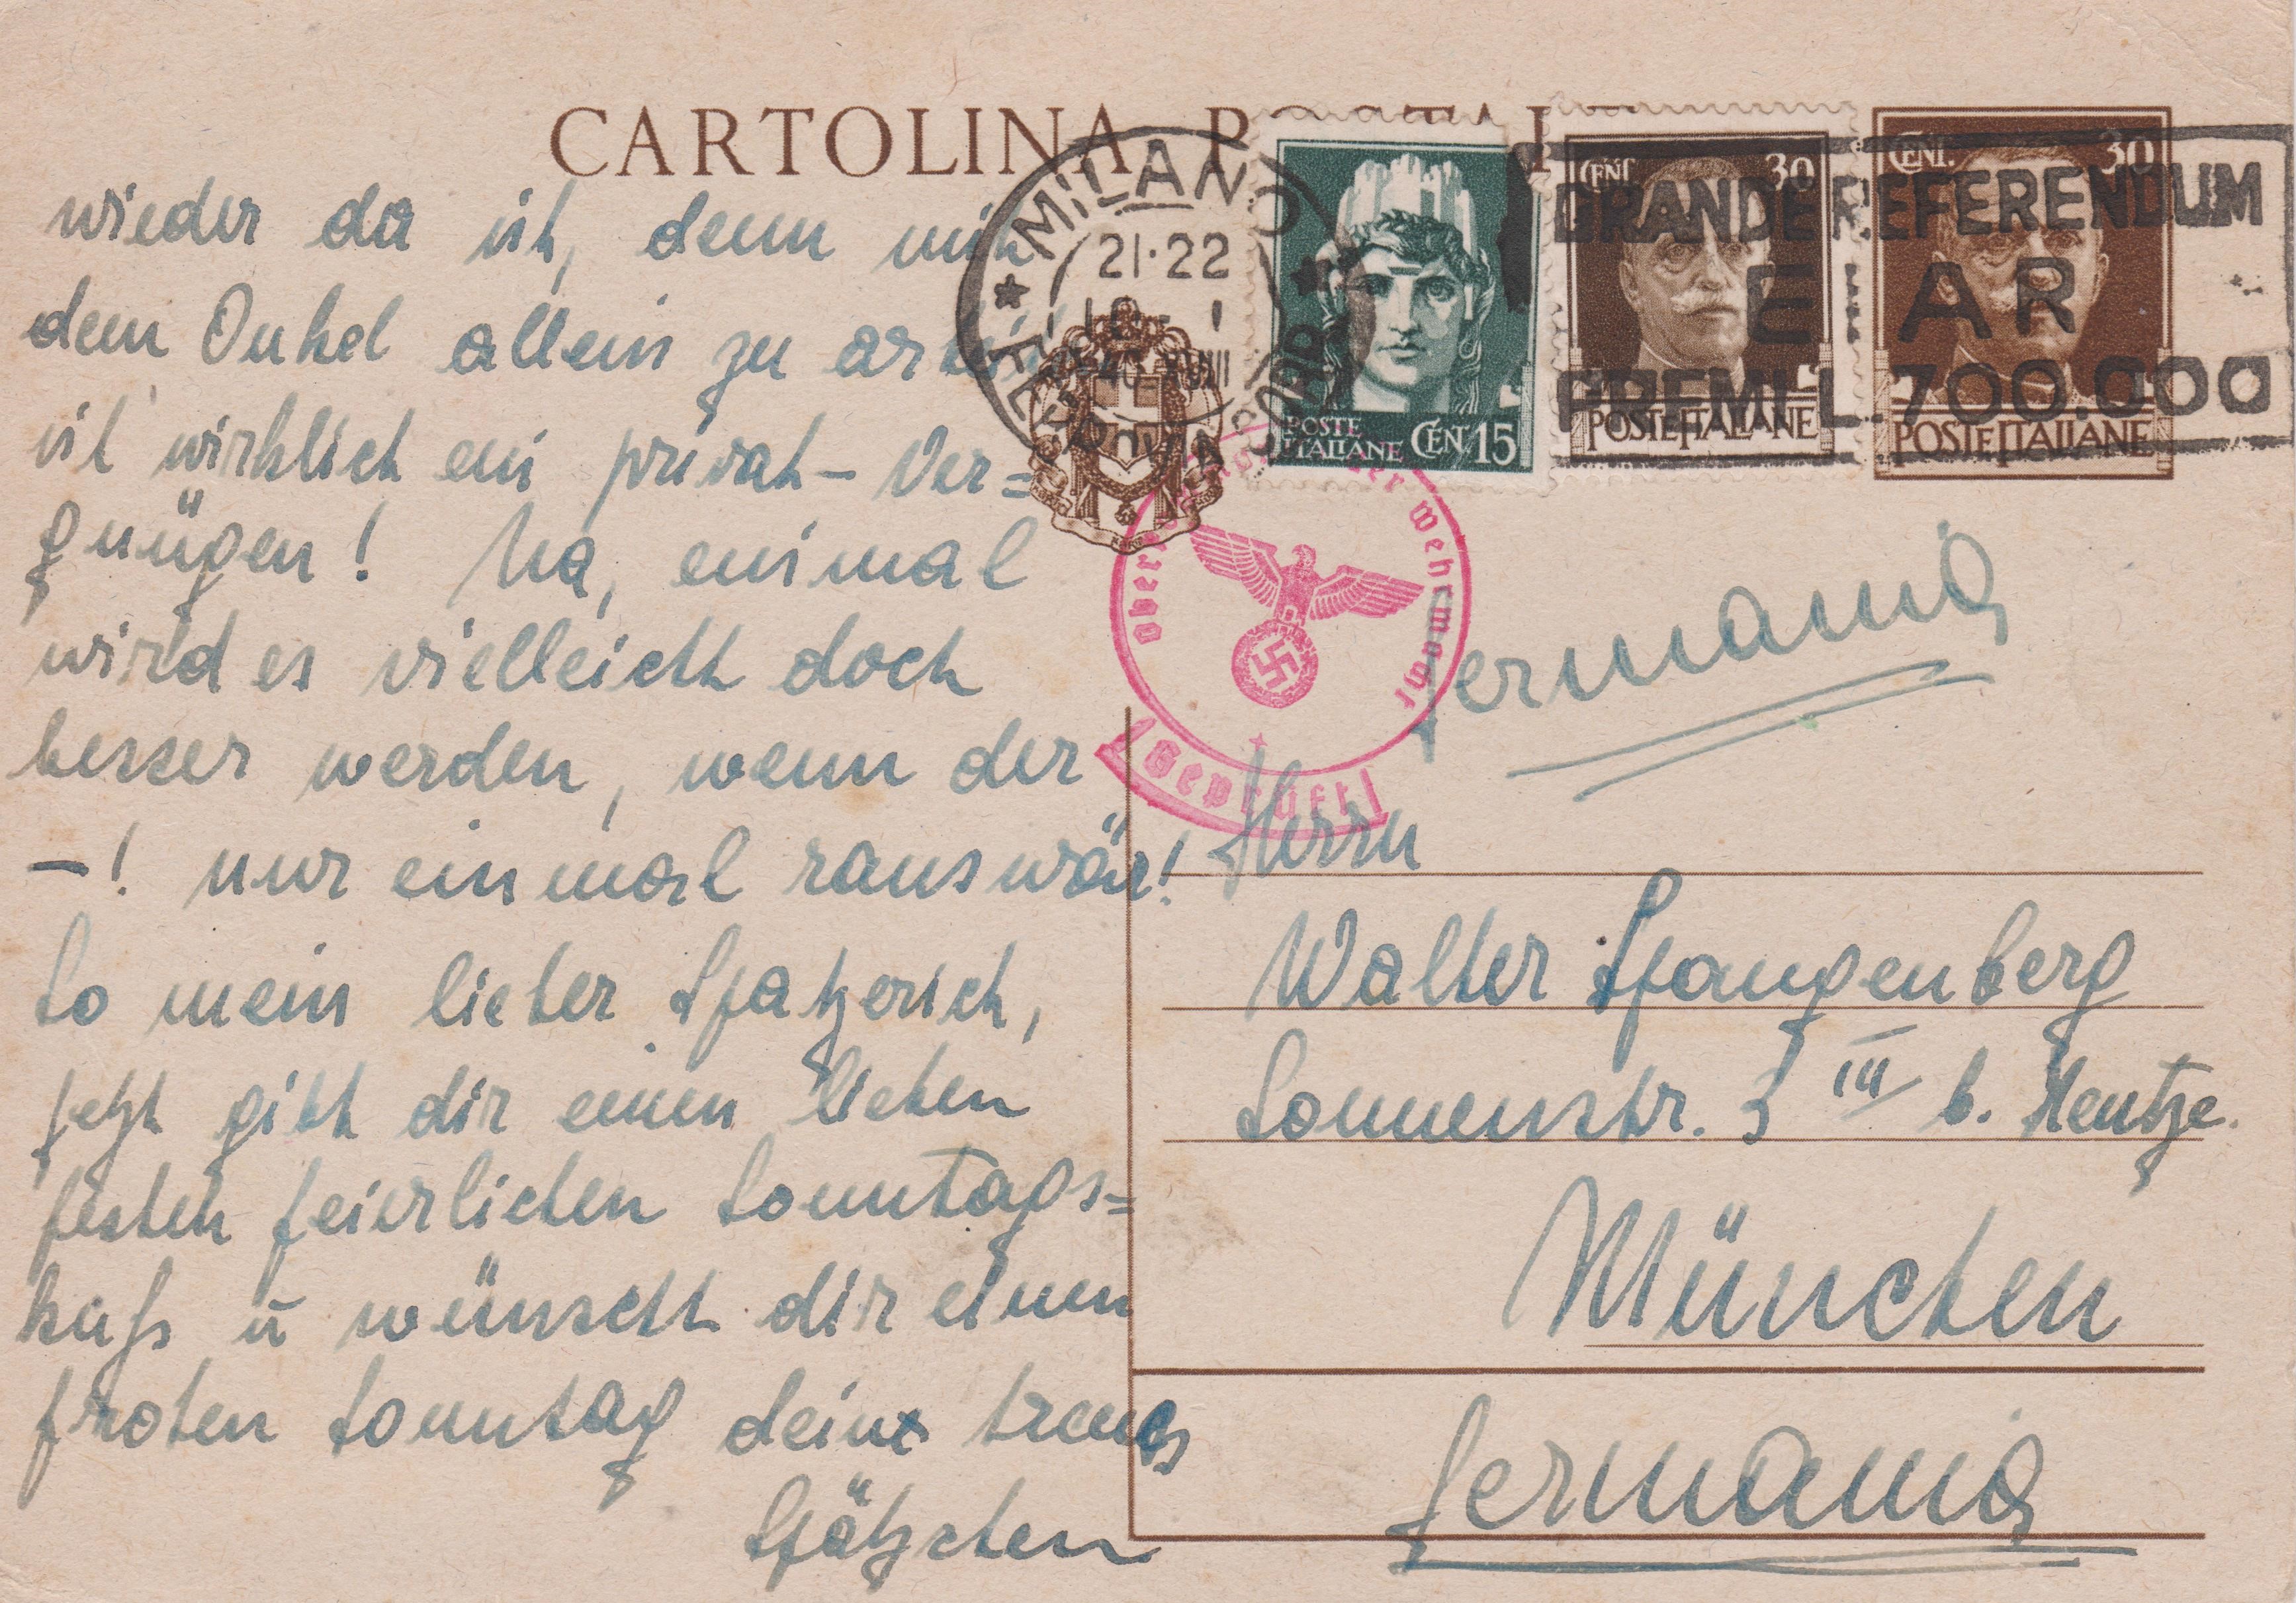 CARTOLINA POSTALE
MILANO
21·22
POSTE
ITALIANE CENT. 15
CENT. 30
POSTE ITALIANE
CENT. 30
POSTE ITALIANE
GRANDE REFERENDUM
E I A R
PREMI L. 700.000
Oberkommando der Wehrmacht
Geprüft
wieder da ist, denn mit
dem Onkel allein zu
ist wirklich ein privat- Ver=
gnügen! Na, einmal
wird es vielleicht doch
besser werden, wenn der
–! nur einmal raus wär!
So mein lieber Spatzerich,
jetzt gibt dir einen lieben
festen feierlichen Sonntags=
kuß u wünscht dir einen
frohen Sonntag dein treues
Spätzchen
Germania
Herrn
Walter Spangenberg
Sonnenstr. 3 III b. Hentze.
München
Germania